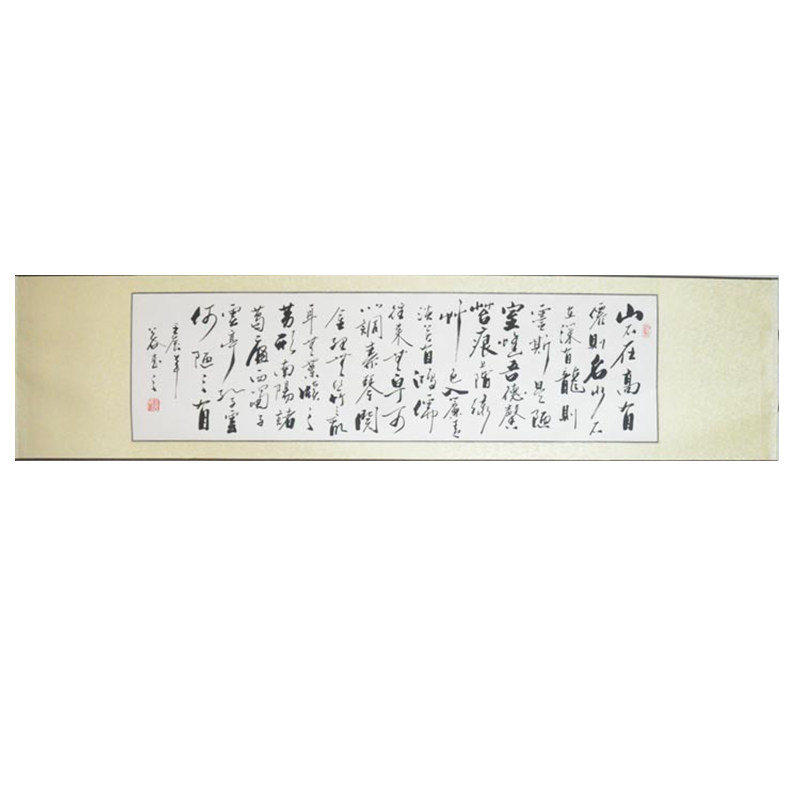 山不在高有
僊則名水不
在深有龍則
靈斯是陋
室唯吾德馨
苔痕上階綠
艸色入簾青
談笑有鴻儒
往來無白丁可
以調素琴閱
金經無竹之亂
耳無案牘之
勞形南陽諸
葛廬西蜀子
雲亭孔子雲
何陋之有
壬辰年